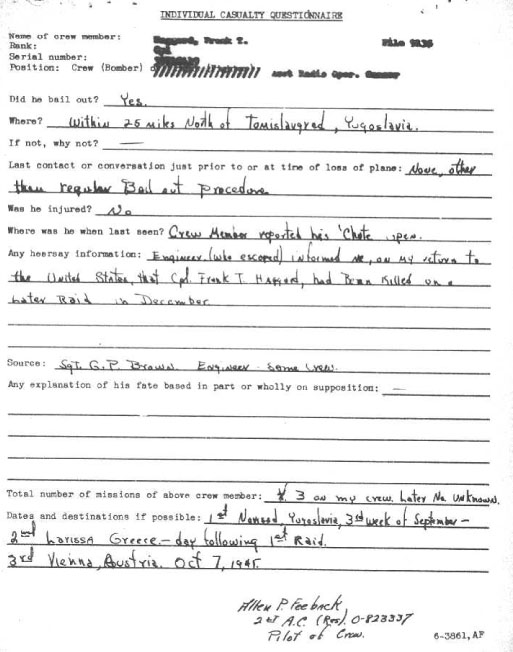 INDIVIDUAL CASUALTY QUESTIONNAIRE
Name of crew member: Haggard, Frank T. File 9236
Rank: Cpl
Serial number:
Position: Crew (Bomber) Asst Radio Oper. Gunner
Did he bail out? Yes.
Where? Within 25 miles North of Tomislavgrad, Yugoslavia.
If not, why not? —
Last contact or conversation just prior to or at time of loss of plane: None, other
than regular Bail out procedure
Was he injured? No
Where was he when last seen? Crew Member reported his 'Chute open.
Any hearsay information: Engineer (who escaped) informed me, on my return to
the United States, that Cpl. Frank T. Haggard, had Been Killed on a
Later Raid in December
Source: Sgt. G. P. Brown. Engineer - same crew.
Any explanation of his fate based in part or wholly on supposition: —
Total number of missions of above crew member: 3 on my crew. Later No. Unknown.
Dates and destinations if possible: 1st Novisad, Yugoslavia, 3rd week of September -
2nd Larissa Greece. - day following 1st Raid.
3rd Vienna, Austria. Oct 7, 1945.
Allen P. Feeback
2nd A.C. (Res). O-823337
Pilot of Crew.
6-3861,AF